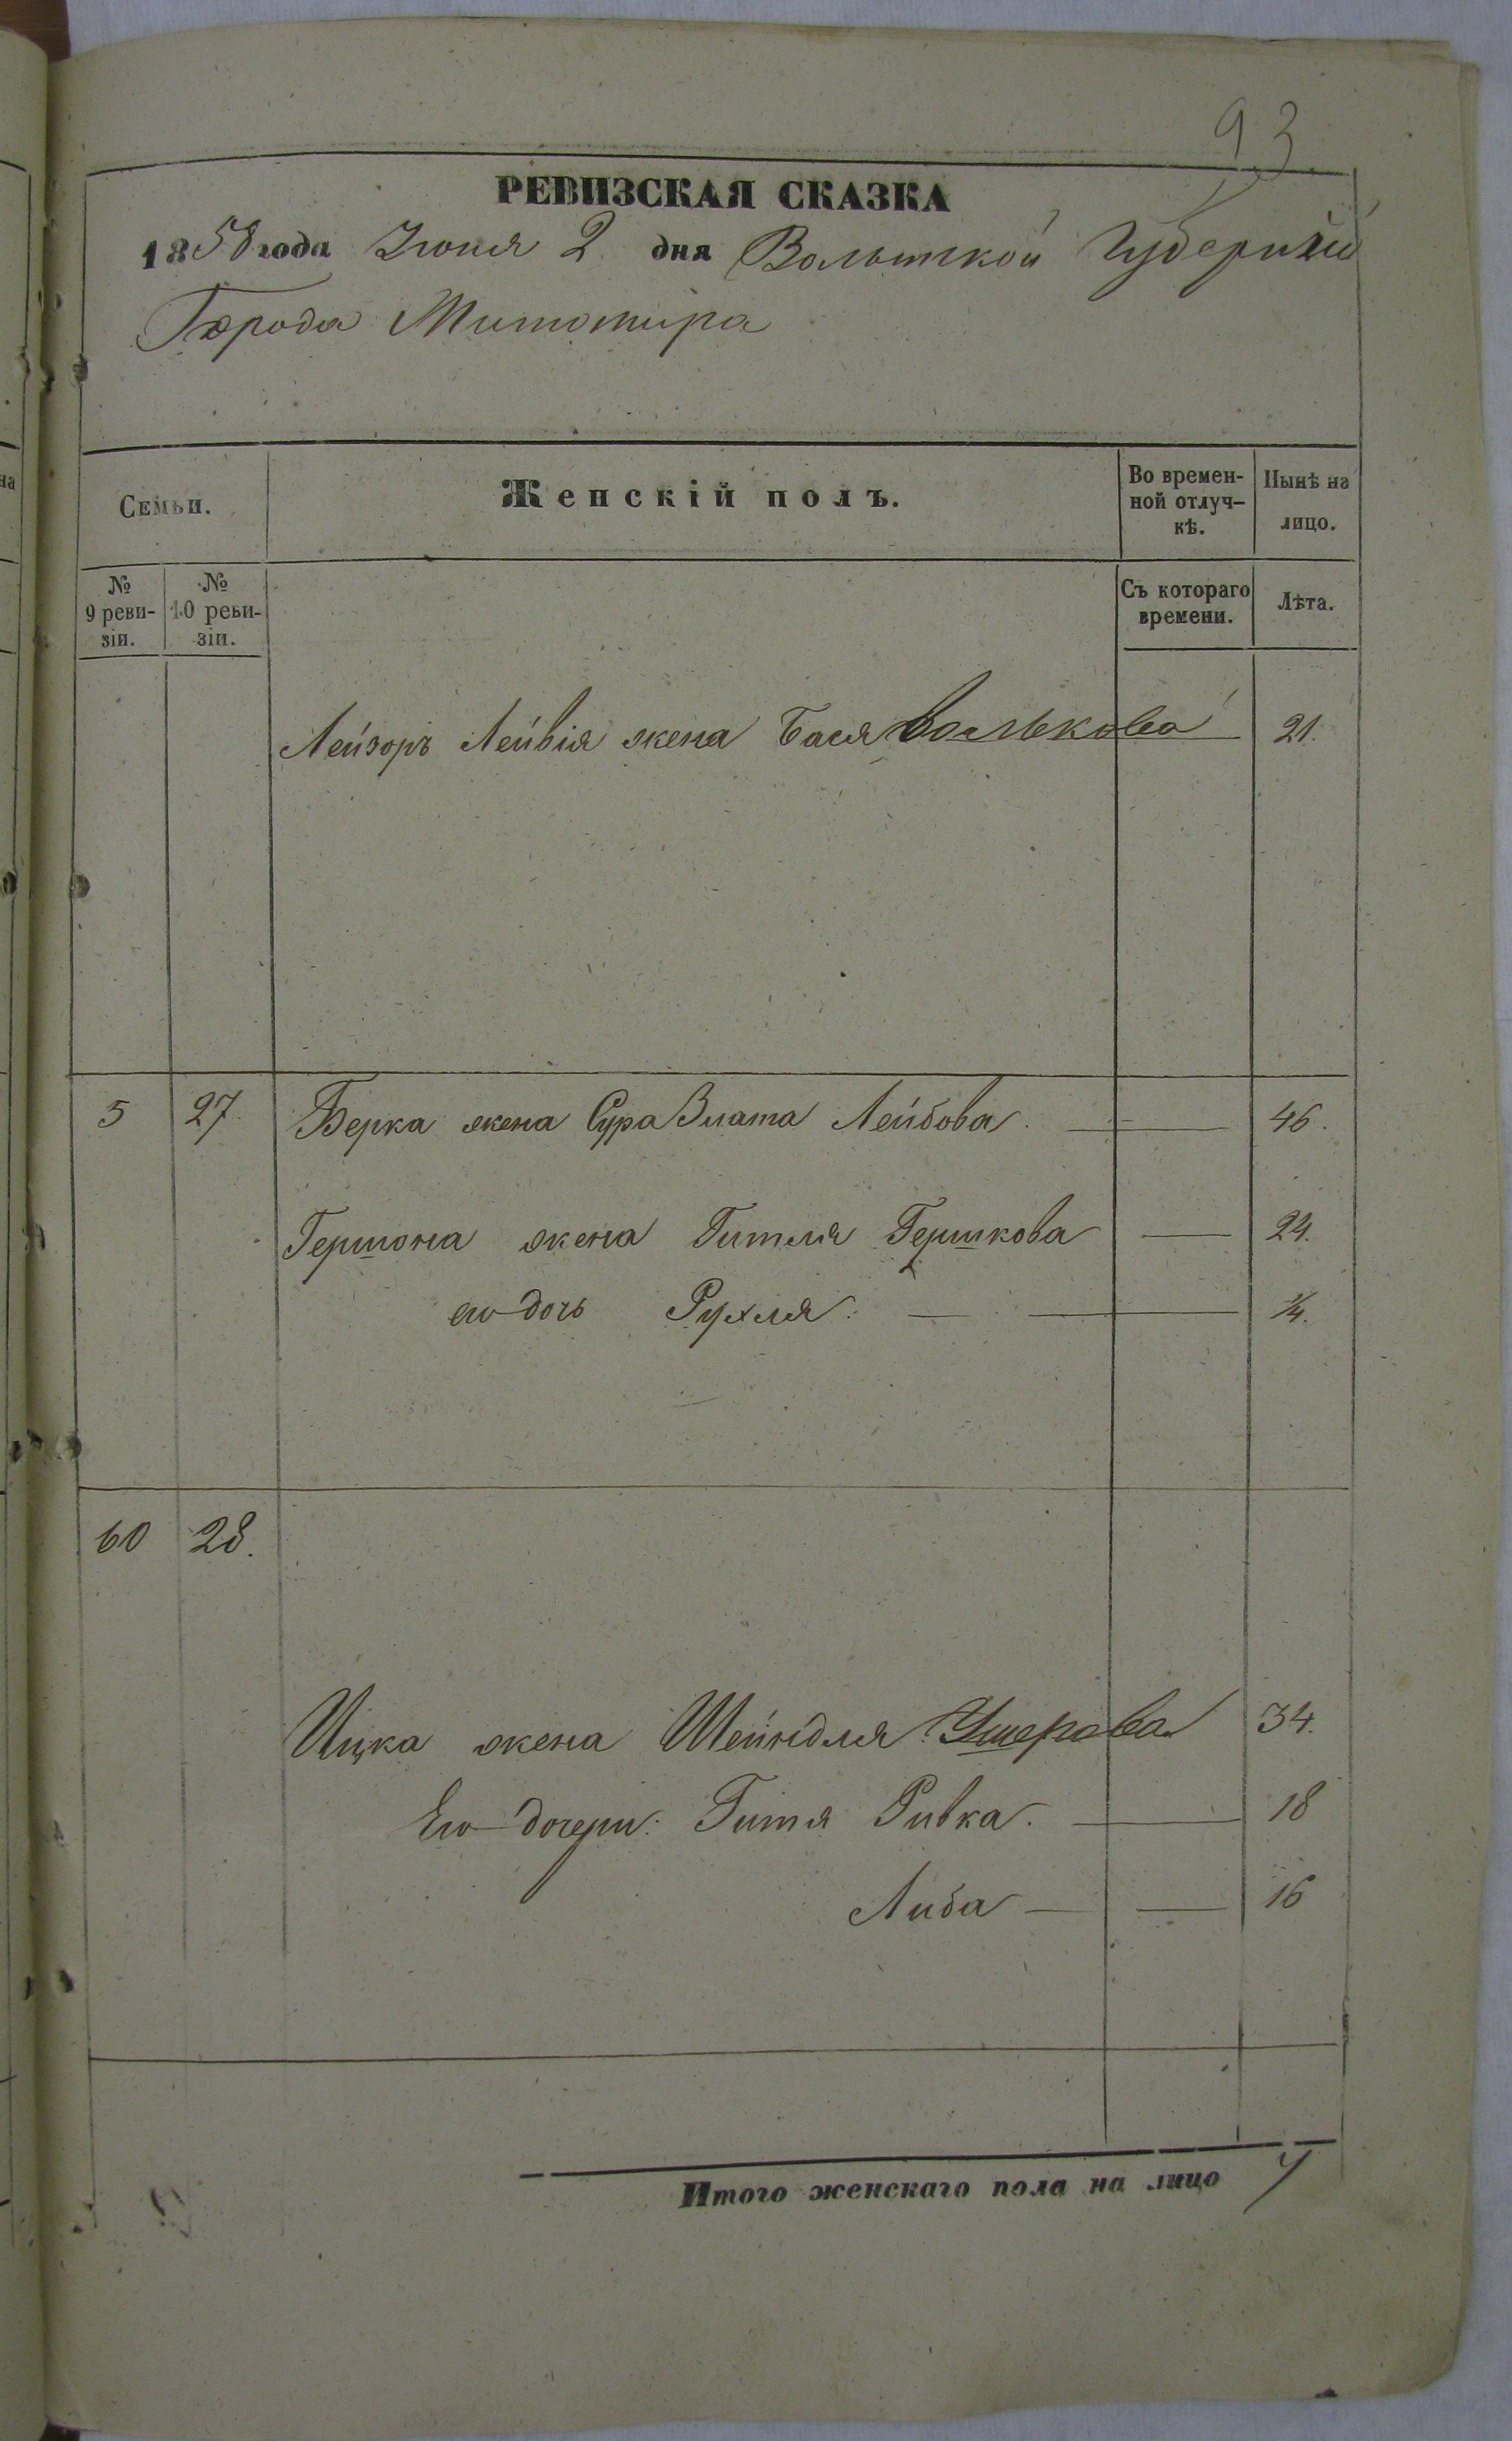 93
РЕВИЗСКАЯ СКАЗКА
1858 года Июня 2 дня Волынской Губерніи
Города Житомира
Семьи.
Женскій полъ.
Во времен-
ной отлуч-
кѣ.
Нынѣ на
лицо.
№
9 реви-
зіи.
№
10 реви-
зіи.
Съ котораго
времени.
Лѣта.
Лейзоръ Лейвія жена Бася Волькова 21.
5 27. Берка жена Сура Злата Лейбова. 46.
Гершона жена Гитля Гершкова 24.
его дочь Рухля. 1/4.
60 28.
Ицка жена Шейндля Ушерова 34.
Его дочери: Гитя Ривка. 18
Либа 16
Итого женскаго пола на лицо 7